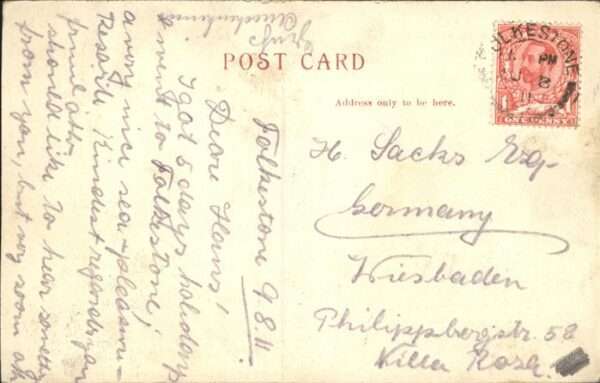 POST CARD
Address only to be here.
FOLKESTONE
PM
11
ONE PENNY
H. Sacks Esq.
Germany
Wiesbaden
Philippbergstr. 58
Villa Rosa.
Folkestone 9.8.11
Deare Hans!
I got 5 days holidays
I went to Folkestone,
a very nice sea-pleasure-
Resort. Kindest regards
should like to hear
from you, but very soon
Gruß